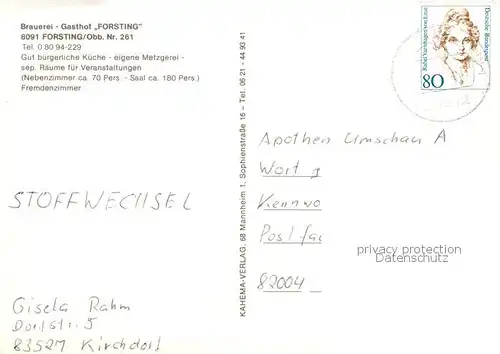 Brauerei - Gasthof „FORSTING"
8091 FORSTING/Obb. Nr. 261
Tel. 0 80 94-229
Gut bürgerliche Küche - eigene Metzgerei -
sep. Räume für Veranstaltungen
(Nebenzimmer ca. 70 Pers. - Saal ca. 180 Pers.)
Fremdenzimmer
STOFFWECHSEL
Gisela Rahm
Dorfstr. 5
83527 Kirchdorf
KAHEMA-VERLAG, 68 Mannheim 1, Sophienstraße 16 - Tel. 06 21 - 44 93 41
Rahel Varnhagen von Ense
Deutsche Bundespost
80
Apotheken Umschau A
Wort
Kennwo
Postfac
82004
privacy protection
Datenschutz